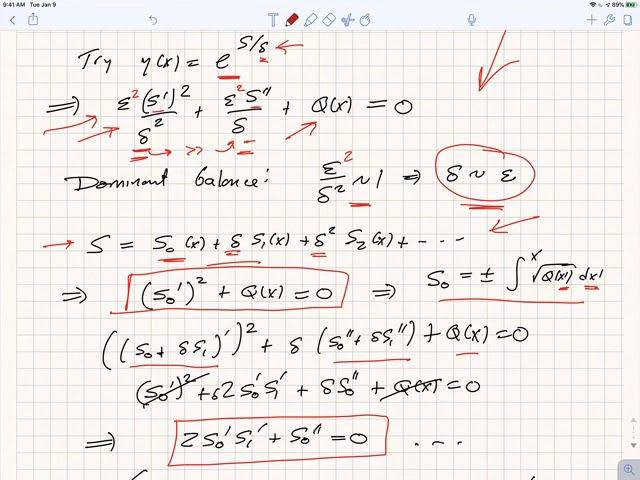 9:41 AM Tue Jan 9
89%
Try y(x) = e^{S/δ} ←
⟹ ε²(S')²/δ² + ε²S''/δ + Q(x) = 0
>>
Dominant balance: ε²/δ² ~ 1 ⟹ δ ~ ε
→ S = S₀(x) + δ S₁(x) + δ² S₂(x) + ····
⟹ (S₀')² + Q(x) = 0 ⟹ S₀ = ± ∫ˣ √Q(x') dx'
((S₀ + δS₁)')² + δ (S₀'' + δS₁'') + Q(x) = 0
(S₀')² + δ2S₀'S₁' + δS₀'' + Q(x) = 0
⟹ 2S₀'S₁' + S₀'' = 0 ····